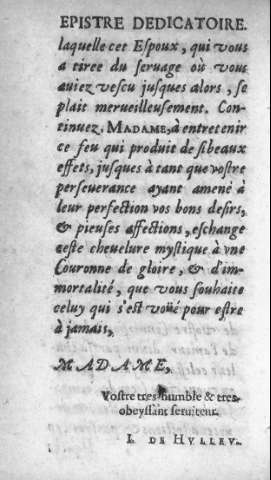 EPISTRE DEDICATOIRE.
laquelle cet Espoux, qui vous
a tiree du seruage où vous
auiez vescu jusques alors, se
plait merueilleusement. Con-
tinuez, MADAME, à entretenir
ce feu qui produit de si beaux
effets, jusques à tant que vostre
perseuerance ayant amené à
leur perfection vos bons desirs,
& pieuses affections, eschange
ceste cheuelure mystique à vne
Couronne de gloire, & d'im-
mortalité, que vous souhaite
celuy qui s'est voüé pour estre
à jamais,
MADAME,
Vostre tres-humble & tres-
obeyssant seruiteur.
L. DE HVLLEV.